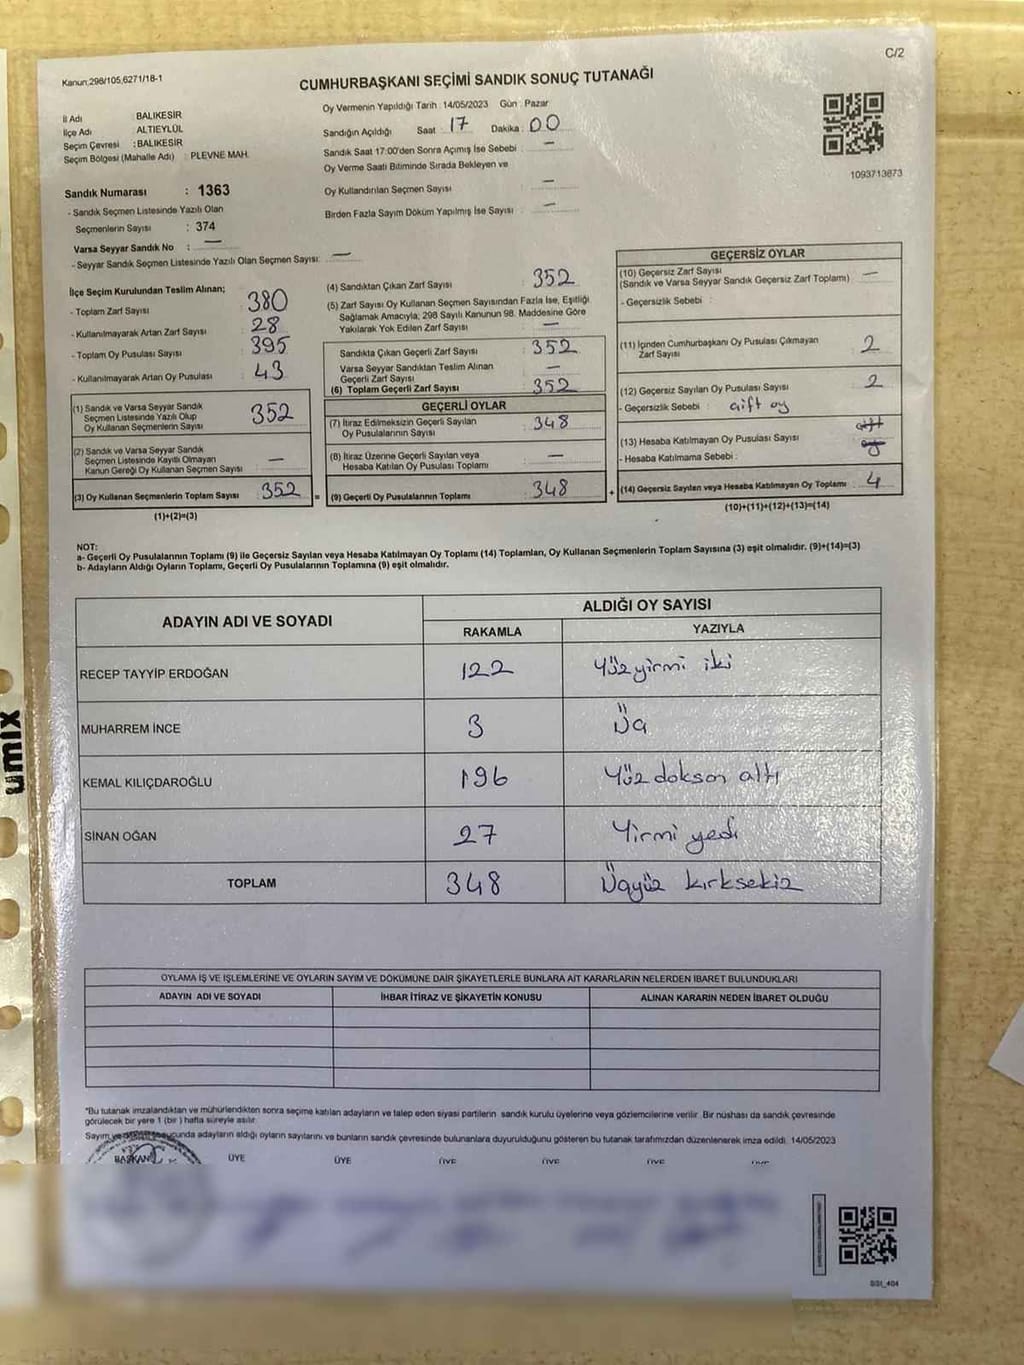 C/2
Kanun:298/105,6271/18-1
CUMHURBAŞKANI SEÇİMİ SANDIK SONUÇ TUTANAĞI
İl Adı BALIKESİR
İlçe Adı ALTIEYLÜL
Seçim Çevresi : BALIKESİR
Seçim Bölgesi (Mahalle Adı) : PLEVNE MAH.
Sandık Numarası : 1363
- Sandık Seçmen Listesinde Yazılı Olan
Seçmenlerin Sayısı : 374
Varsa Seyyar Sandık No : —
- Seyyar Sandık Seçmen Listesinde Yazılı Olan Seçmen Sayısı: —
Oy Vermenin Yapıldığı Tarih : 14/05/2023 Gün : Pazar
Sandığın Açıldığı Saat 17 Dakika : 00
Sandık Saat 17:00'den Sonra Açımış İse Sebebi : —
Oy Verme Saati Bitiminde Sırada Bekleyen ve
Oy Kullandırılan Seçmen Sayısı : —
Birden Fazla Sayım Döküm Yapılmış İse Sayısı : —
1093713873
İlçe Seçim Kurulundan Teslim Alınan;
- Toplam Zarf Sayısı : 380
- Kullanılmayarak Artan Zarf Sayısı : 28
- Toplam Oy Pusulası Sayısı : 395
- Kullanılmayarak Artan Oy Pusulası : 43
(1) Sandık ve Varsa Seyyar Sandık
Seçmen Listesinde Yazılı Olup
Oy Kullanan Seçmenlerin Sayısı : 352
(2) Sandık ve Varsa Seyyar Sandık
Seçmen Listesinde Kayıtlı Olmayan
Kanun Gereği Oy Kullanan Seçmen Sayısı : —
(3) Oy Kullanan Seçmenlerin Toplam Sayısı : 352 =
(1)+(2)=(3)
(4) Sandıktan Çıkan Zarf Sayısı : 352
(5) Zarf Sayısı Oy Kullanan Seçmen Sayısından Fazla İse, Eşitliği
Sağlamak Amacıyla; 298 Sayılı Kanunun 98. Maddesine Göre
Yakılarak Yok Edilen Zarf Sayısı : —
Sandıkta Çıkan Geçerli Zarf Sayısı : 352
Varsa Seyyar Sandıktan Teslim Alınan
Geçerli Zarf Sayısı : —
(6) Toplam Geçerli Zarf Sayısı : 352
GEÇERLİ OYLAR
(7) İtiraz Edilmeksizin Geçerli Sayılan
Oy Pusulalarının Sayısı : 348
(8) İtiraz Üzerine Geçerli Sayılan veya
Hesaba Katılan Oy Pusulası Toplamı : —
(9) Geçerli Oy Pusulalarının Toplamı : 348 +
GEÇERSİZ OYLAR
(10) Geçersiz Zarf Sayısı : —
(Sandık ve Varsa Seyyar Sandık Geçersiz Zarf Toplamı)
- Geçersizlik Sebebi :
(11) İçinden Cumhurbaşkanı Oy Pusulası Çıkmayan
Zarf Sayısı : 2
(12) Geçersiz Sayılan Oy Pusulası Sayısı : 2
- Geçersizlik Sebebi : çift oy
(13) Hesaba Katılmayan Oy Pusulası Sayısı :
- Hesaba Katılmama Sebebi :
(14) Geçersiz Sayılan veya Hesaba Katılmayan Oy Toplamı : 4
(10)+(11)+(12)+(13)=(14)
NOT:
a- Geçerli Oy Pusulalarının Toplamı (9) ile Geçersiz Sayılan veya Hesaba Katılmayan Oy Toplamı (14) Toplamları, Oy Kullanan Seçmenlerin Toplam Sayısına (3) eşit olmalıdır. (9)+(14)=(3)
b- Adayların Aldığı Oyların Toplamı, Geçerli Oy Pusulalarının Toplamına (9) eşit olmalıdır.
ADAYIN ADI VE SOYADI ALDIĞI OY SAYISI
RAKAMLA YAZIYLA
RECEP TAYYİP ERDOĞAN 122 Yüzyirmi iki
MUHARREM İNCE 3 Üç
KEMAL KILIÇDAROĞLU 196 Yüz doksan altı
SİNAN OĞAN 27 Yirmi yedi
TOPLAM 348 Üçyüz kırksekiz
OYLAMA İŞ VE İŞLEMLERİNE VE OYLARIN SAYIM VE DÖKÜMÜNE DAİR ŞİKAYETLERLE BUNLARA AİT KARARLARIN NELERDEN İBARET BULUNDUKLARI
ADAYIN ADI VE SOYADI İHBAR İTİRAZ VE ŞİKAYETİN KONUSU ALINAN KARARIN NEDEN İBARET OLDUĞU
*Bu tutanak imzalandıktan ve mühürlendikten sonra seçime katılan adayların ve talep eden siyasi partilerin sandık kurulu üyelerine veya gözlemcilerine verilir. Bir nüshası da sandık çevresinde
görülecek bir yere 1 (bir ) hafta süreyle asılır.
Sayım ve adayların aldığı oyların sayılarını ve bunların sandık çevresinde bulunanlara duyurulduğunu gösteren bu tutanak tarafımızdan düzenlenerek imza edildi. 14/05/2023
BAŞKAN ÜYE ÜYE ÜYE ÜYE ÜYE
umix